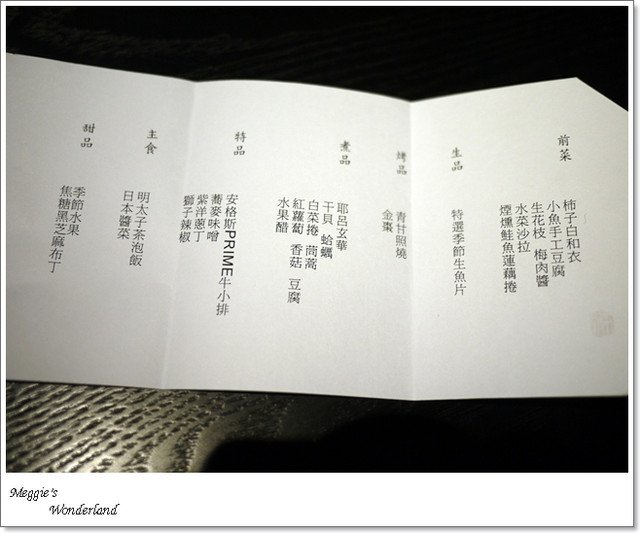 前菜
柿子白和衣
小魚手工豆腐
生花枝 梅肉醬
水菜沙拉
煙燻鮭魚蓮藕捲
生品
特選季節生魚片
烤品
青甘照燒
金棗
煮品
耶呂玄華
干貝 蛤蠣
白菜捲 茼蒿
紅蘿蔔 香菇 豆腐
水果醋
特品
安格斯PRIME牛小排
蕎麥味噌
紫洋蔥丁
獅子辣椒
主食
明太子茶泡飯
日本醬菜
甜品
季節水果
焦糖黑芝麻布丁
Meggie's
Wonderland